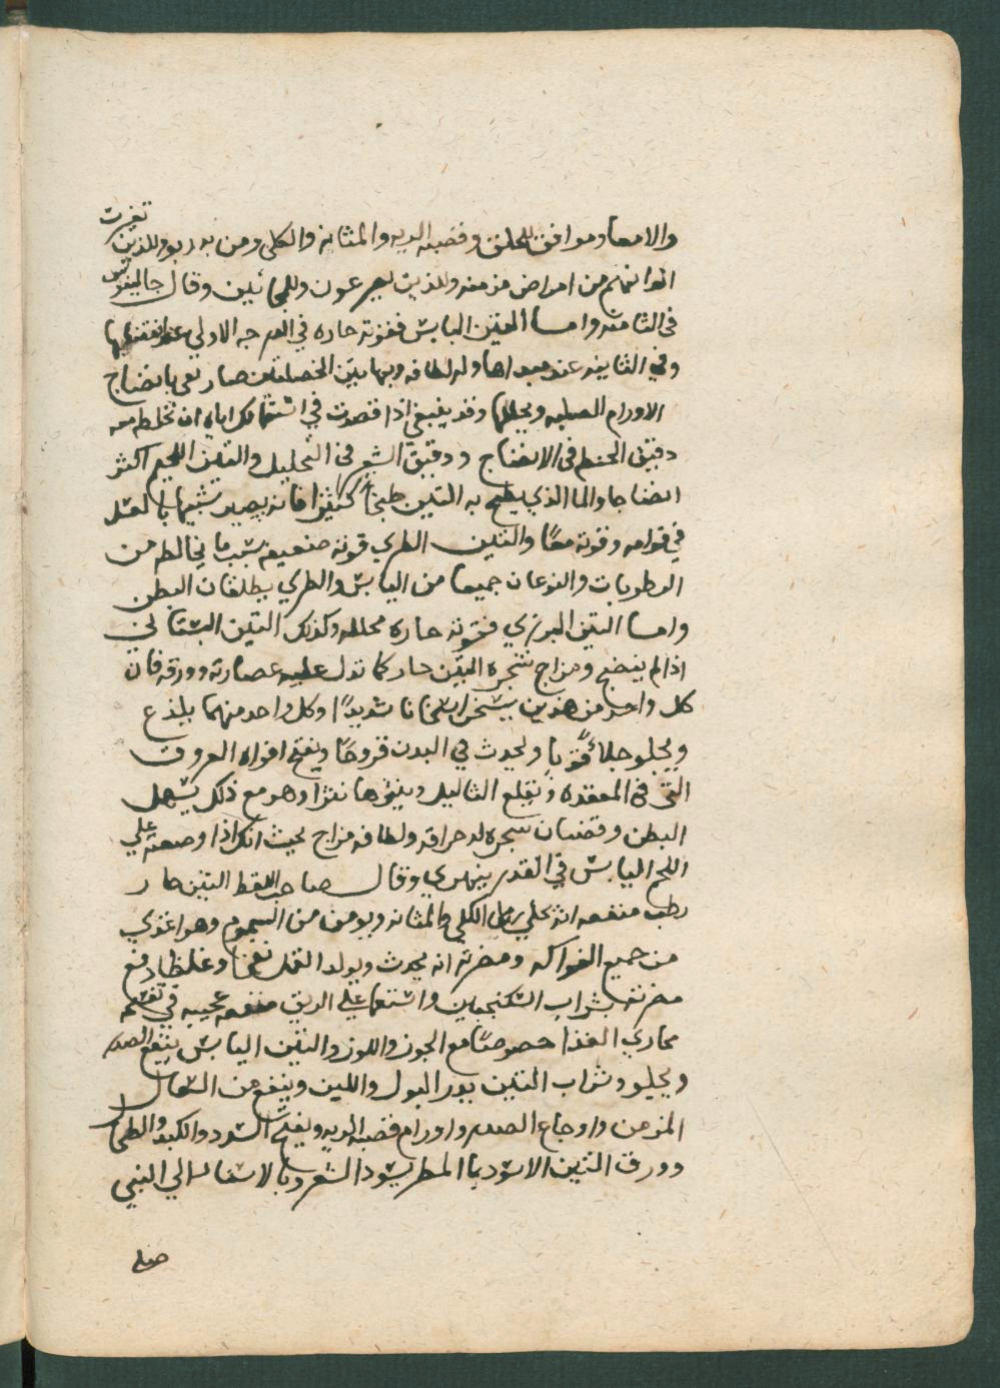 والامعا وموافق للحلق وقصبه الريه والمثانة والكلى ومن به ربو وللذين تغيرت
الوانهم من امراض مزمنه وللذين يصرعون وللمجانين وقال جالينوس
في الثامنه واما التين اليابس فقوته حاره في الدرجه الاولي عند انقضايها
وفي الثانيه عند مبداها وله لطافه وبهاتين الخصلتين صار يفي بانضاج
الاورام الصلبه ويحللها وقد ينبغي اذا قصدت في استعمالك اياه ان تخلط معه
دقيق الحنطه في الانضاج ودقيق الشعير في التحليل والتين اللحيم اكثر
انضاجا والما الذي يطبخ به التين طبخاً كثيرا فانه يصير شبيها بالعسل
في قوامه وقوته معًا والتين الطري قوته ضعيفه بسبب ما يخالطه من
الرطوبات والنوعان جميعا من اليابس والطري يطلقان البطن
واما التين البري فقوته حاره محلله وكذلك التين البستاني
اذا لم ينضج ومزاج شجره التين حار كما تدل عليه عصارته وورقه فان
كل واحد من هذين يسخن اسخانا شديدًا وكل واحد منهما يلذع
ويجلو جلاءً قوياً ويحدث في البدن قروحًا ويفتح افواه العروق
التي في المقعده ويقلع الثاليل وينثرها نثرا وهو مع ذلك يسهل
البطن وقضبان شجره له حراقه ولطافه مزاج بحيث انك اذا وضعته علي
اللحم اليابس في القدر ينهري وقال صاحب اللقط التين حار
رطب منفعه انه يجلي رمل الكلي والمثانه ويومن من السموم وهو اغذي
من جميع الفواكه ومضرته انه يحدث ويولد القمل نفخا وغلظا دفع
مضرته بشراب السكنجبين واستعماله علي الريق منفعه عجيبه في تفتيح
مجاري الغذا خصوصًا مع الجوز واللوز والتين اليابس ينفع الصدر
ويجلو وشراب التين يدر البول واللبن وينفع من السعال
المزمن واوجاع الصدر واورام قصبه الريه ويفتح السدد والكبد والطحال
وورق التين الاسود بما المطر يسود الشعر وبالاسناد الي النبي
صلي